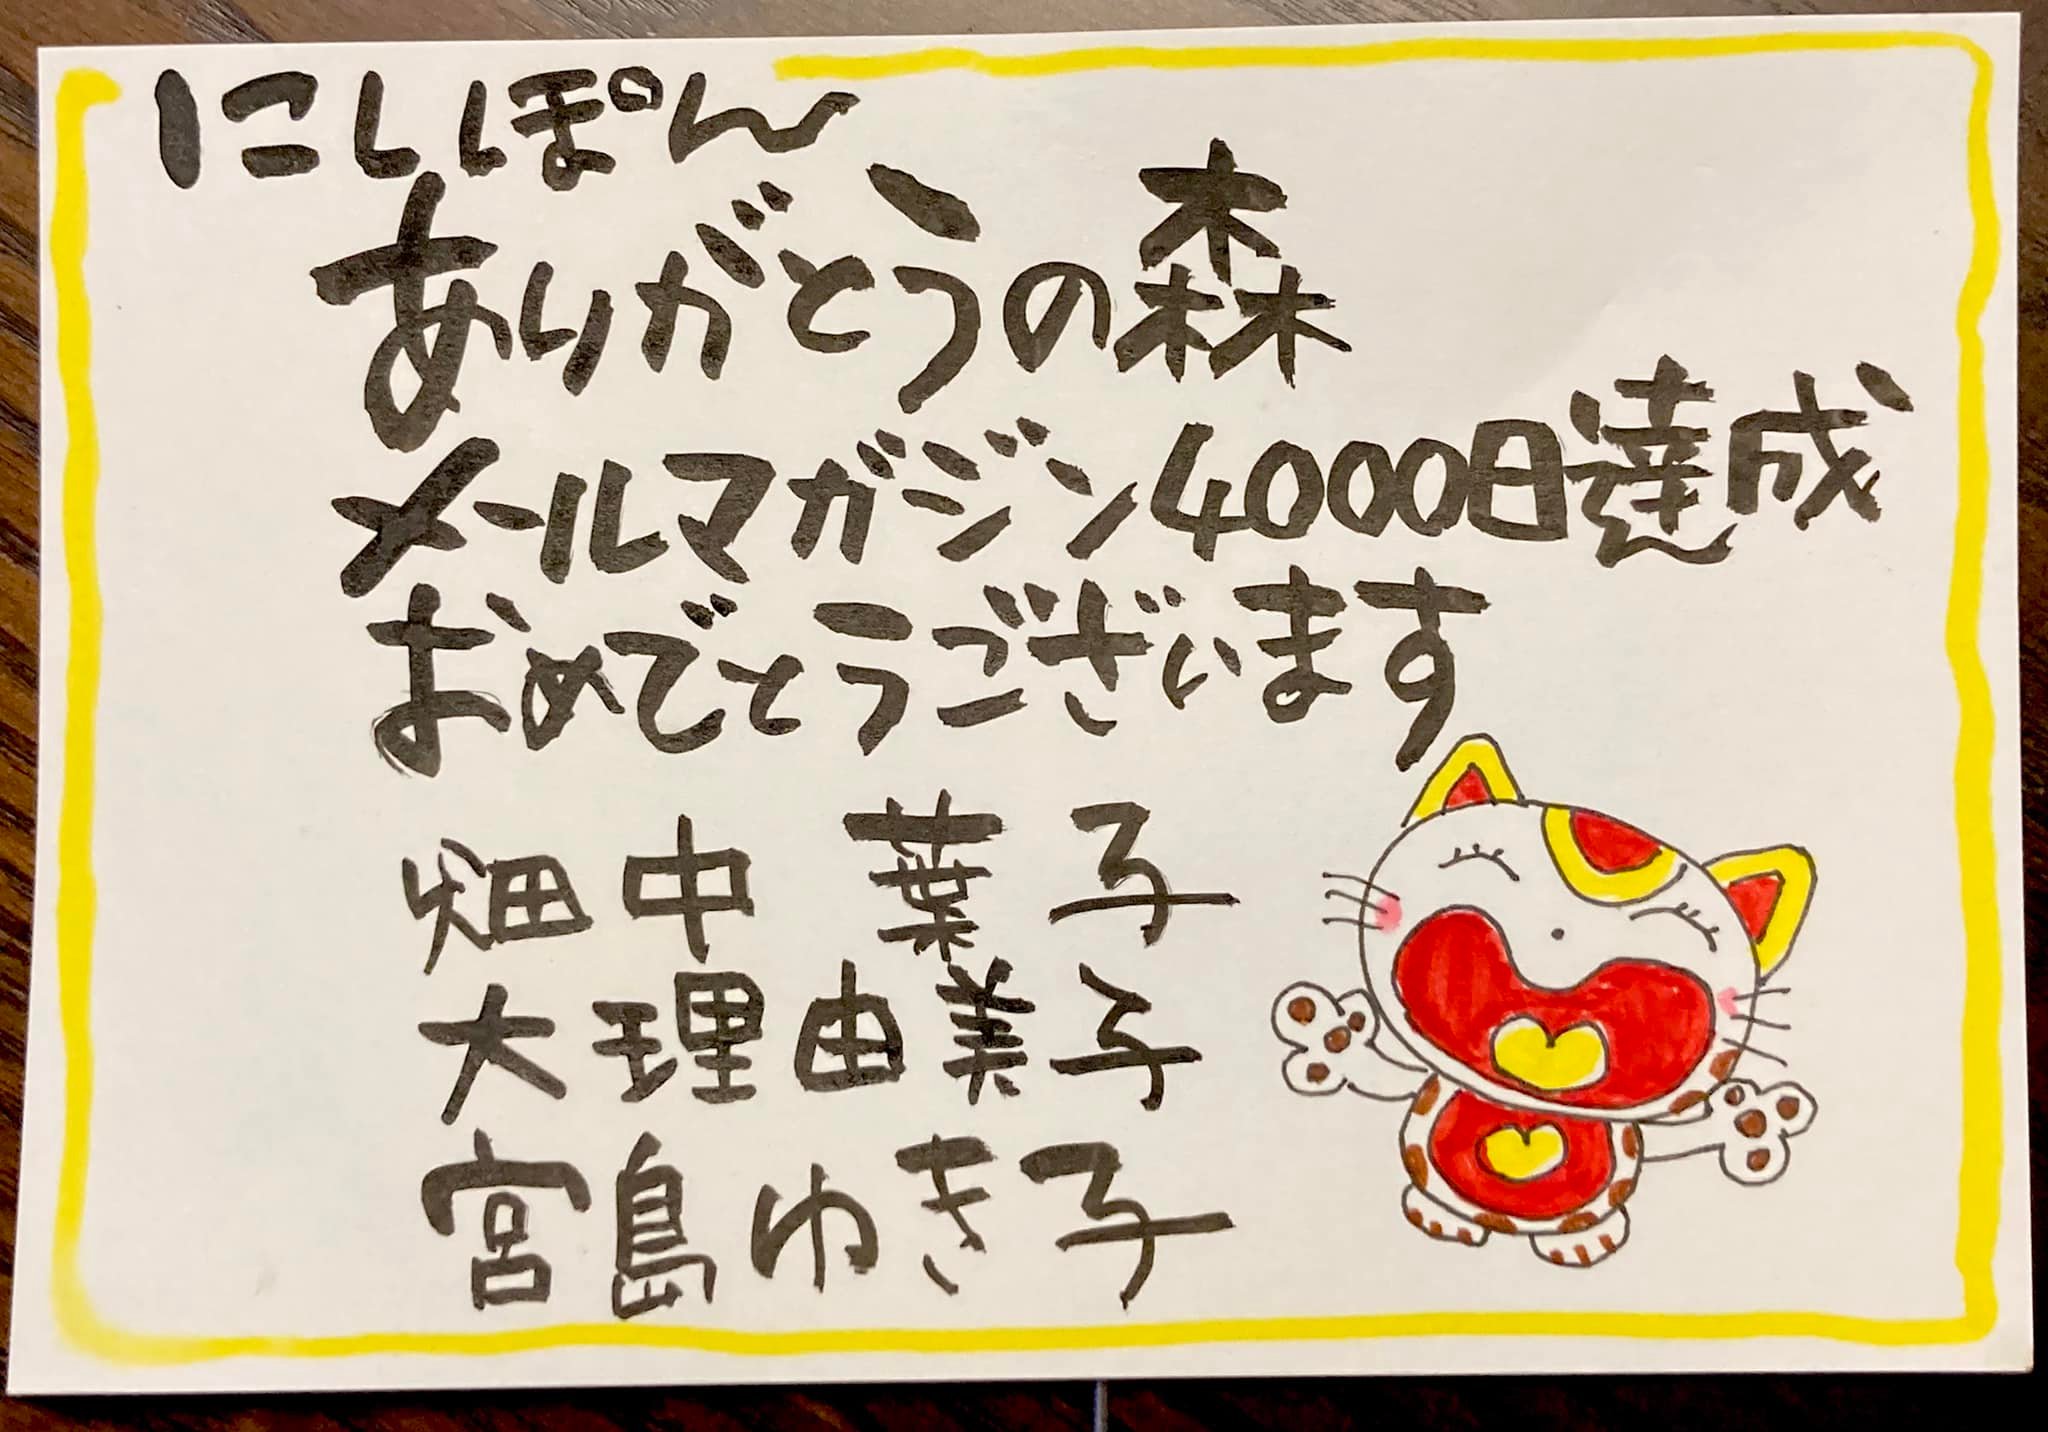 にししぽん
ありがとうの森
メールマガジン4000日達成
おめでとうございます
畑中 葉子
大理由美子
宮島ゆき子